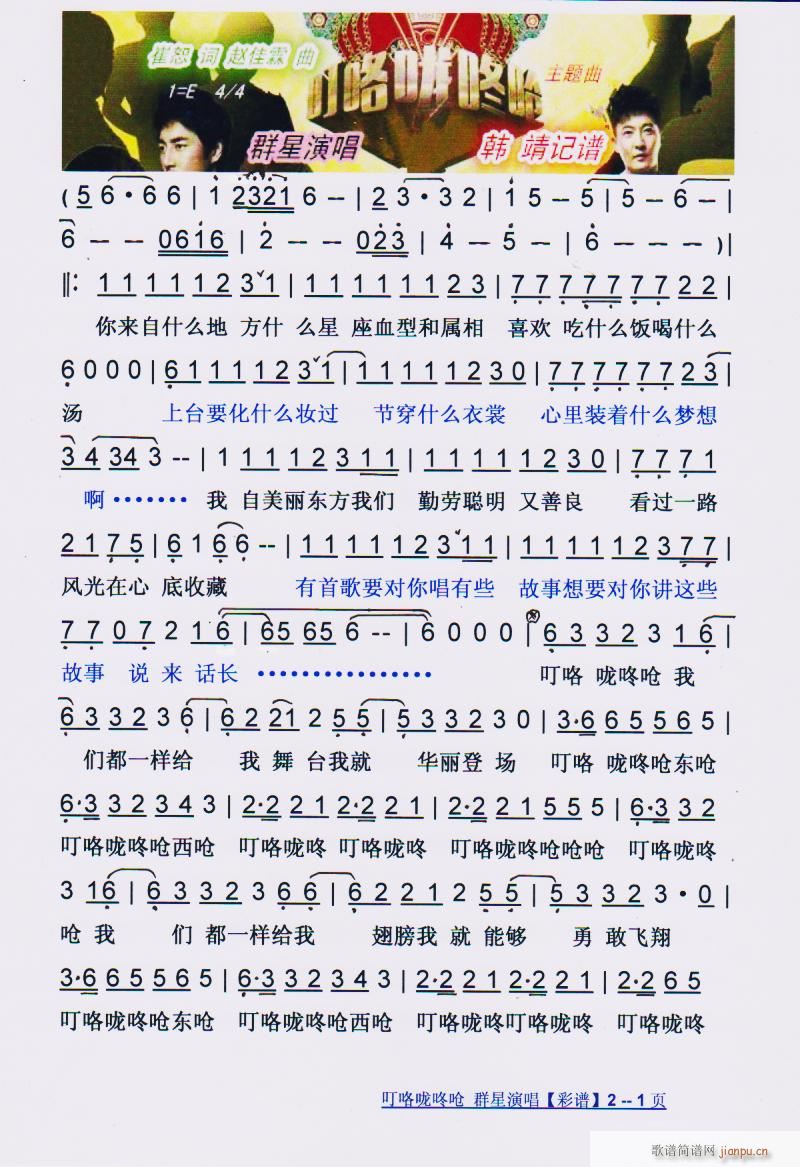 崔恕 词 赵佳霖 曲
叮咯咙咚呛
主题曲
1=E 4/4
群星演唱
韩 靖记谱
( 5 6·6 6 | 1 2321 6 – | 2 3·3 2 | 1 5 – – 5 | 5 – 6 – |
6 – – – 0616 | 2 – – 023 | 4 – 5 – | 6 – – – )|
‖: 1 1 1 1 1 2 3 1 | 1 1 1 1 1 1 2 3 | 7 7 7 7 7 7 7 2 2 |
你来自什么地 方什 么星 座血型和属相 喜欢 吃什么饭喝什么
6 0 0 0 | 6 1 1 1 1 2 3 1 | 1 1 1 1 1 2 3 0 | 7 7 7 7 7 7 2 3 |
汤 上台要化什么妆过 节穿什么衣裳 心里装着什么梦想
3 4 34 3 – – | 1 1 1 1 2 3 1 1 | 1 1 1 1 1 2 3 0 | 7 7 7 1
啊······· 我 自美丽东方我们 勤劳聪明 又善良 看过一路
2 1 7 5 | 6 1 6 6 – – | 1 1 1 1 1 2 3 1 1 | 1 1 1 1 1 2 3 7 7 |
风光在心 底收藏 有首歌要对你唱有些 故事想要对你讲这些
7 7 0 7 2 16 | 65 65 6 – – | 6 0 0 0 | 6 3 3 2 3 1 6 |
故事 说 来 话长 ················ 叮咯 咙咚呛 我
6 3 3 2 3 6 | 6 2 21 2 5 5 | 5 3 3 2 3 0 | 3·6 6 5 5 6 5 |
们都一样给 我 舞 台我就 华丽登 场 叮咯 咙咚呛东呛
6·3 3 2 3 4 3 | 2·2 2 1 2·2 2 1 | 2·2 2 1 5 5 5 | 6·3 3 2
叮咯咙咚呛西呛 叮咯咙咚 叮咯咙咚 叮咯咙咚呛呛呛 叮咯咙咚
3 16 | 6 3 3 2 3 6 6 | 6 2 2 1 2 5 5 | 5 3 3 2 3·0 |
呛 我 们 都一样给我 翅膀我 就 能够 勇 敢飞翔
3·6 6 5 5 6 5 | 6·3 3 2 3 4 3 | 2·2 2 1 2·2 2 1 | 2·2 6 5
叮咯咙咚呛东呛 叮咯咙咚呛西呛 叮咯咙咚叮咯咙咚 叮咯咙咚
叮咯咙咚呛 群星演唱【彩谱】2 -- 1 页
歌谱简谱网
jianpu.cn